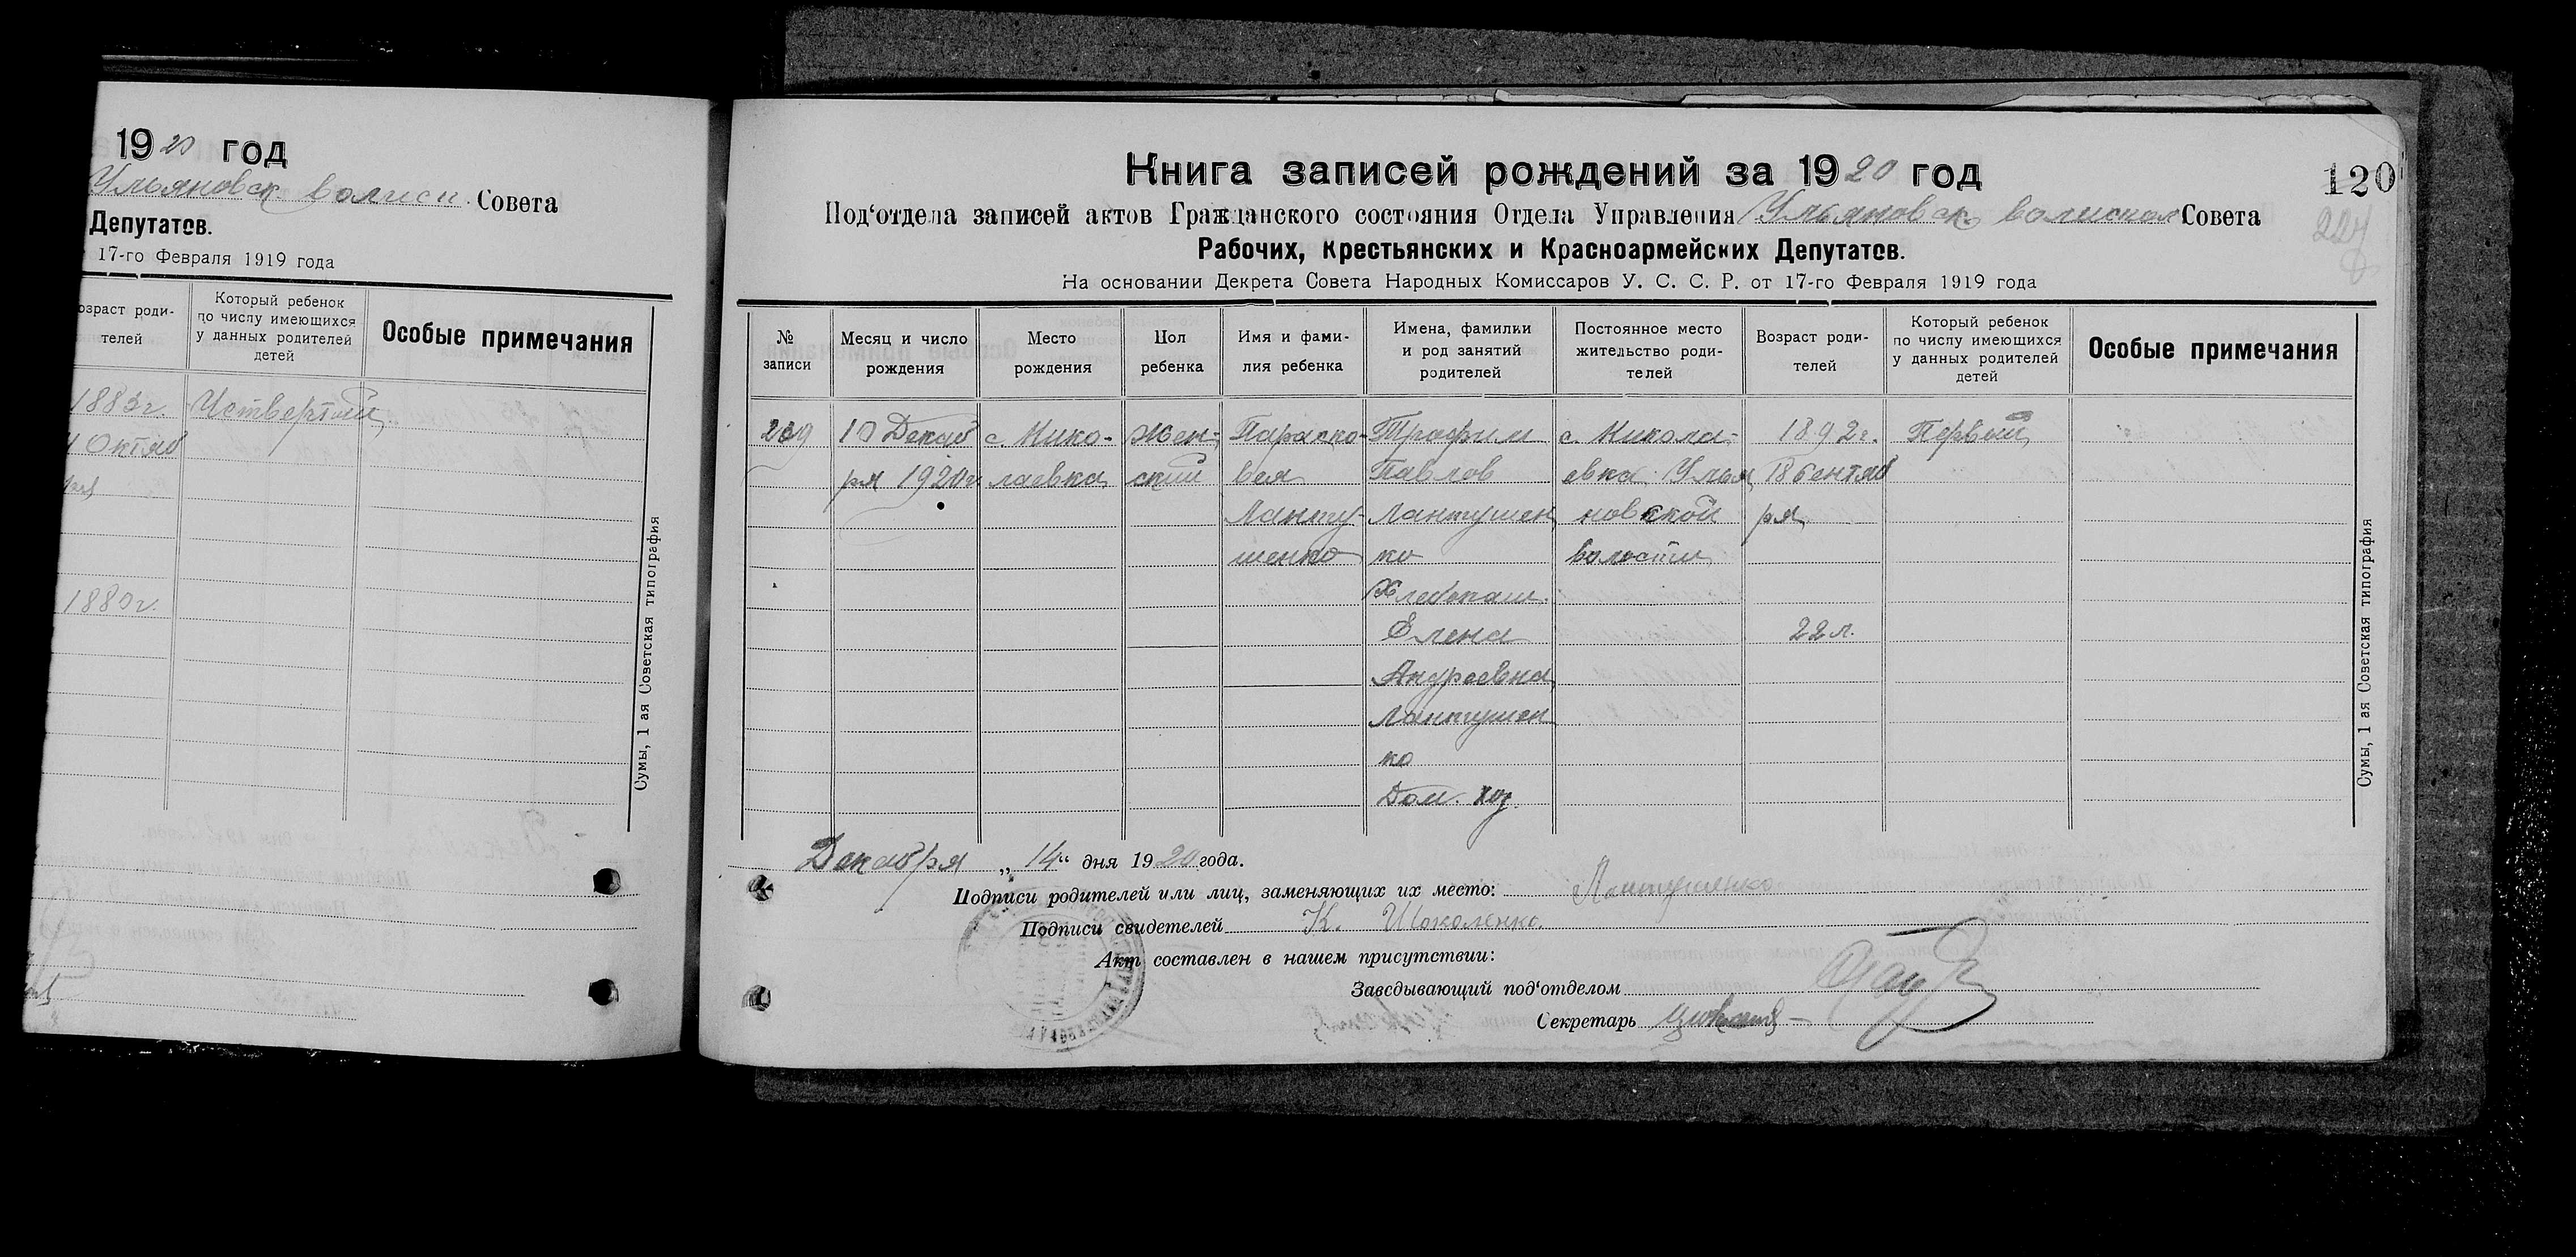 1920 год
Ульяновск волисп. Совета
Депутатов.
17-го Февраля 1919 года
озраст роди-
телей
Который ребенок
по числу имеющихся
у данных родителей
детей
Особые примечания
1883г. Четвертый
Октяб
1880г.
Сумы, 1 ая Советская типография
Книга записей рождений за 1920 год
120
Под‘отдела записей актов Гражданского состояния Отдела Управления Ульяновск. волиспол Совета
227
Рабочих, Крестьянских и Красноармейских Депутатов.
На основании Декрета Совета Народных Комиссаров У. С. С. Р. от 17-го Февраля 1919 года
№
записи
Месяц и число
рождения
Место
рождения
Пол
ребенка
Имя и фами-
лия ребенка
Имена, фамилии
и род занятий
родителей
Постоянное место
жительство роди-
телей
Возраст роди-
телей
Который ребенок
по числу имеющихся
у данных родителей
детей
Особые примечания
209 10 Декаб с. Нико- Жен- Параско- Трофим с. Никола- 1892г. Первый
ря 1920г лаевка ский вея Павлов евка Улья 18 Сентяб
Ланту- Лантушен новской ря
шенко ко волости
Хлебопаш.
Елена 22 л.
Андреевна
Лантушен
ко
Дом. хоз.
Декабря „14“ дня 1920 года.
Подписи родителей или лиц, заменяющих их место: Лантушенко
Подписи свидетелей К. Шоколенко.
Акт составлен в нашем присутствии:
Заведывающий под‘отделом
Секретарь
Сумы, 1 ая Советская типография